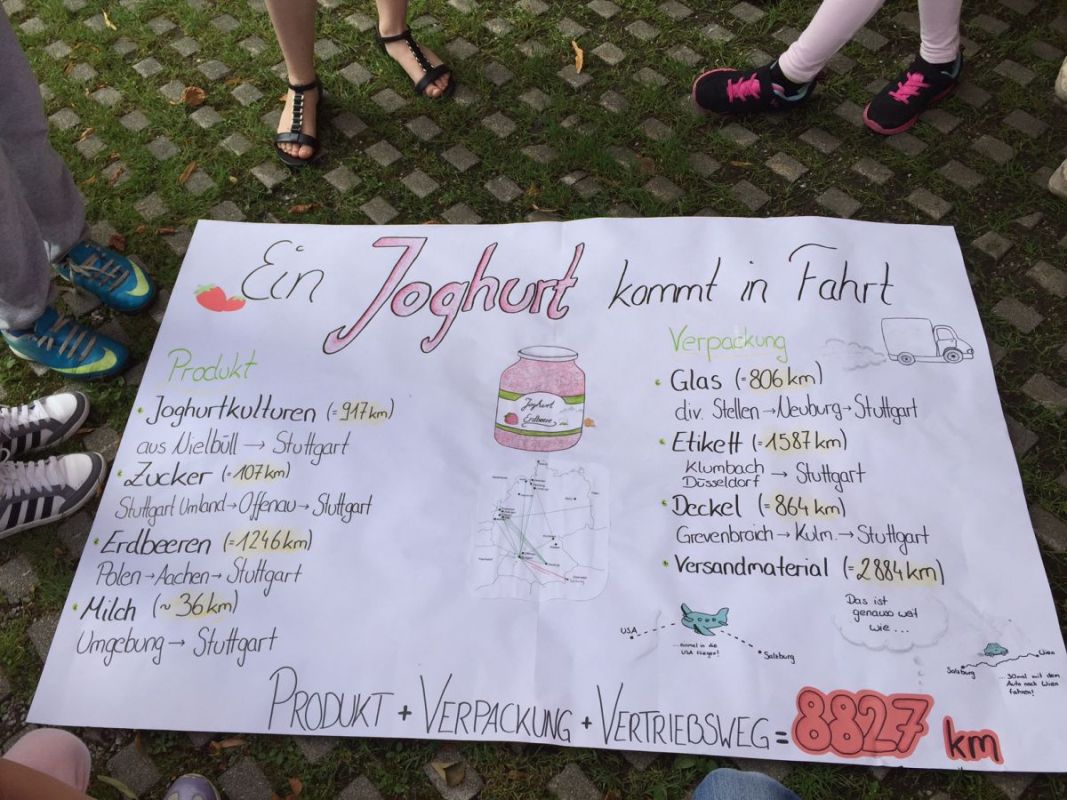 Ein Joghurt kommt in Fahrt
Produkt
• Joghurtkulturen (= 917 km)
aus Nielbüll → Stuttgart
• Zucker (= 107 km)
Stuttgart Umland → Offenau → Stuttgart
• Erdbeeren (= 1246 km)
Polen → Aachen → Stuttgart
• Milch (~ 36 km)
Umgebung → Stuttgart
Joghurt
Erdbeere
Verpackung
• Glas (= 806 km)
div. Stellen → Neuburg → Stuttgart
• Etikett (= 1587 km)
Klumbach
Düsseldorf → Stuttgart
• Deckel (= 864 km)
Grevenbroich → Kulm. → Stuttgart
• Versandmaterial (= 2884 km)
USA
...einmal in die
USA fliegen!
Salzburg
Das ist
genauso weit
wie...
Salzburg
Wien
...30mal mit dem
Auto nach Wien
fahren!
PRODUKT + VERPACKUNG + VERTRIEBSWEG = 8827 km